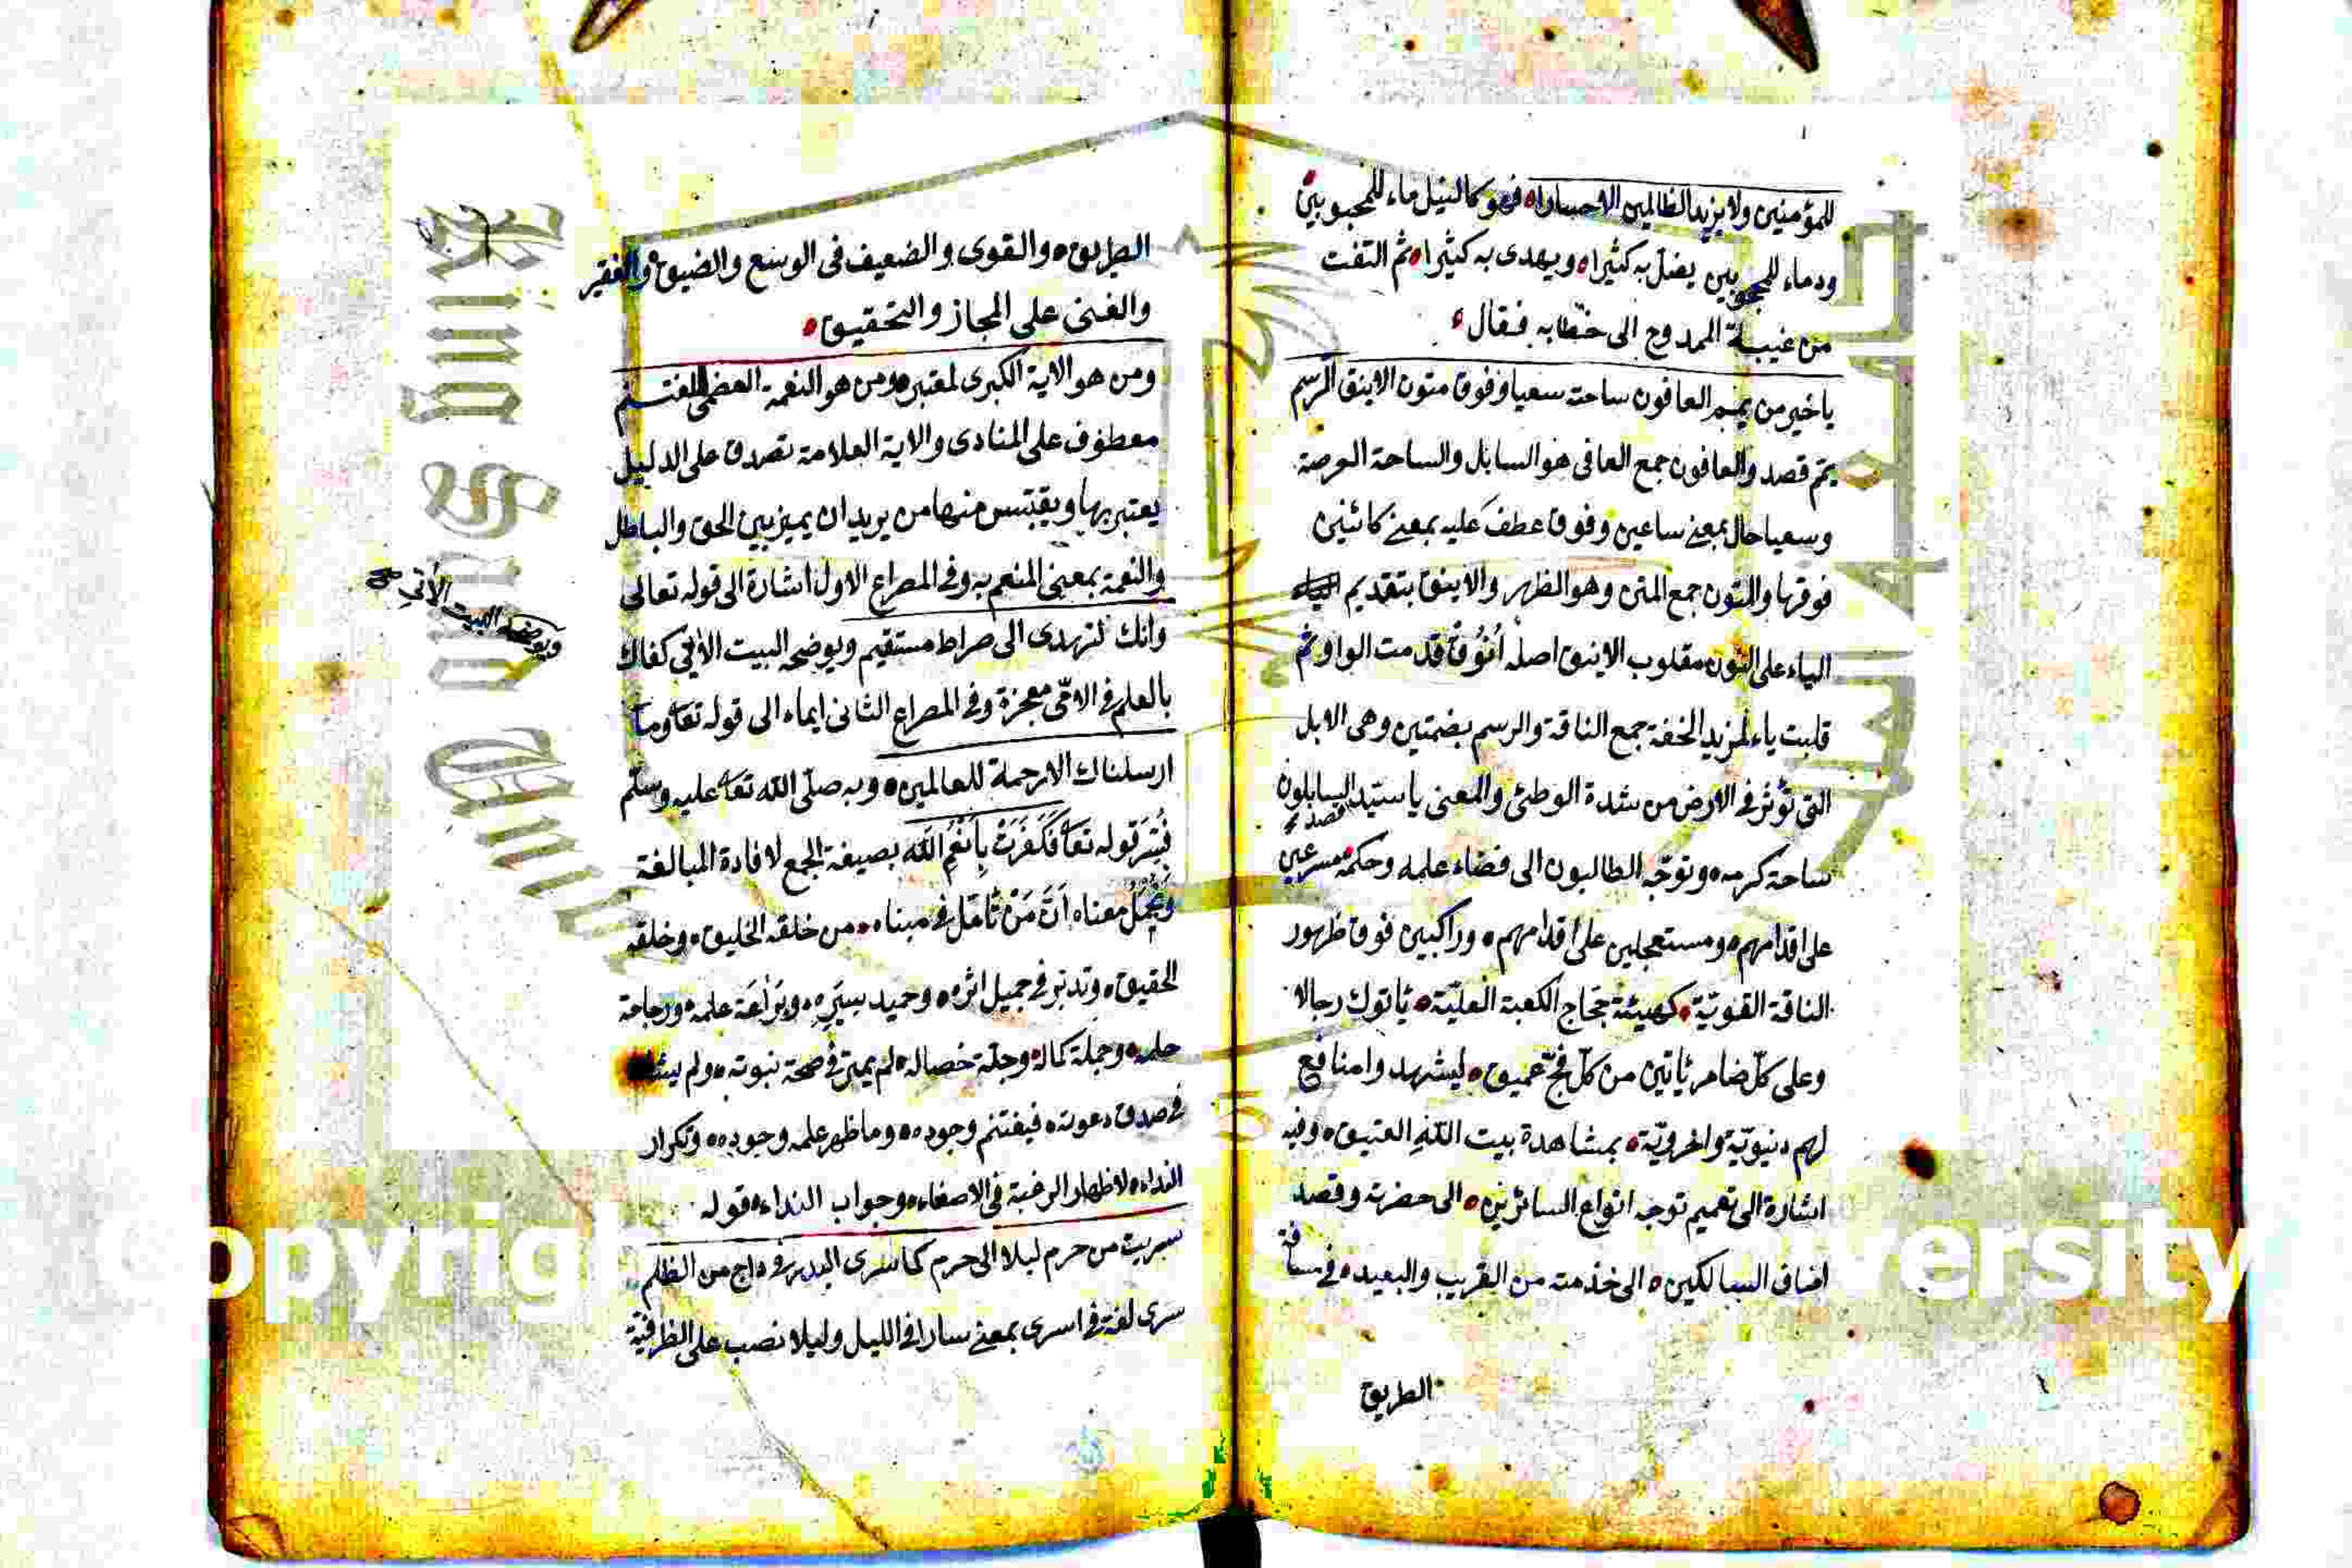 للمؤمنين ولا يزيد الظالمين الا خسارا فهو كالنيل ماء للمحبوبين
ودماء للمحجوبين يضل به كثيرا ويهدى به كثيرا ثم التفت
من غيبة الممدوح الى خطابه فقال
يا خير من يمم العافون ساحته سعيا وفوق متون الاينق الرسم
يمّ قصد والعافون جمع العافى هو السايل والساحة العرصة
وسعيا حال بمعنى ساعين وفوق عطف عليه بمعنى كائنين
فوقها والمتون جمع المتن وهو الظهر والاينق بتقديم
الياء على النون مقلوب الانيق اصله أنوُق قدمت الواو ثم
قلبت ياء لمزيد الخفة جمع الناقة والرسم بضمتين وهى الابل
التى تؤثر فى الارض من شدة الوطئ والمعنى يا سيد السايلون
قصد
ساحة كرمه وتوجّه الطالبون الى فضاء علمه وحكمه مسرعين
على اقدامهم ومستعجلين على اقدامهم وراكبين فوق ظهور
الناقة القويّة كهيئة حجاج الكعبة العليّة ياتوك رجالا
وعلى كلّ ضامر ياتين من كلّ فجّ عميق ليشهدوا منافع
لهم دنيويّة واخرويّة بمشاهدة بيت الله العتيق وفيه
اشارة الى تعميم توجه انواع السائرين الى حضرته وقصد
اصناف السالكين الى خدمته من القريب والبعيد فى مسافة
الطريق
الطريق والقوى والضعيف فى الوسع والضيق والفقير
والغنى على المجاز والتحقيق
ومن هو الاية الكبرى لمعتبر ومن هو النعمة العظمى لمغتنم
معطوف على المنادى والاية العلامة تصدق على الدليل
يعتبر بها ويقتبس منها من يريد ان يميز بين الحق والباطل
والنعمة بمعنى المنعم به وفى المصراع الاول اشارة الى قوله تعالى
وانك لتهدى الى صراط مستقيم ويوضحه البيت الاتى كفاك
ويوضحه البيت الأتى
بالعلم فى الامّى معجزة وفى المصراع الثانى ايماء الى قوله تعا وما
ارسلناك الا رحمة للعالمين وبه صلّى الله تعا عليه وسلّم
فُسِّرَ قوله تعا فَكَفَرَتْ بِأَنْعُمِ الله بصيغة الجمع لافادة المبالغة
معناه أنَّ مَنْ تأمّل فى مبناه من خلقه الخليق وخلقه
الحقيق وتدبّر فى جميل اثره وحميد سيَره وبَرَاعَة علمه ورجاحة
حلمه وجملة كماله وجلّة خصاله لم يمتر فى صحة نبوته ولم يشك
فى صدق دعوته فيغتنم وجوده وما ظهر علمه وجوده وتكرار
النداء لاظهار الرغبة فى الاصغاء وجواب النداء قوله
سريت من حرم ليلا الى حرم كما سرى البدر فى داج من الظلم
سرى لغة فى اسرى بمعنى سار فى الليل وليلا نصب على الظرفيّة
Copyright
ersity